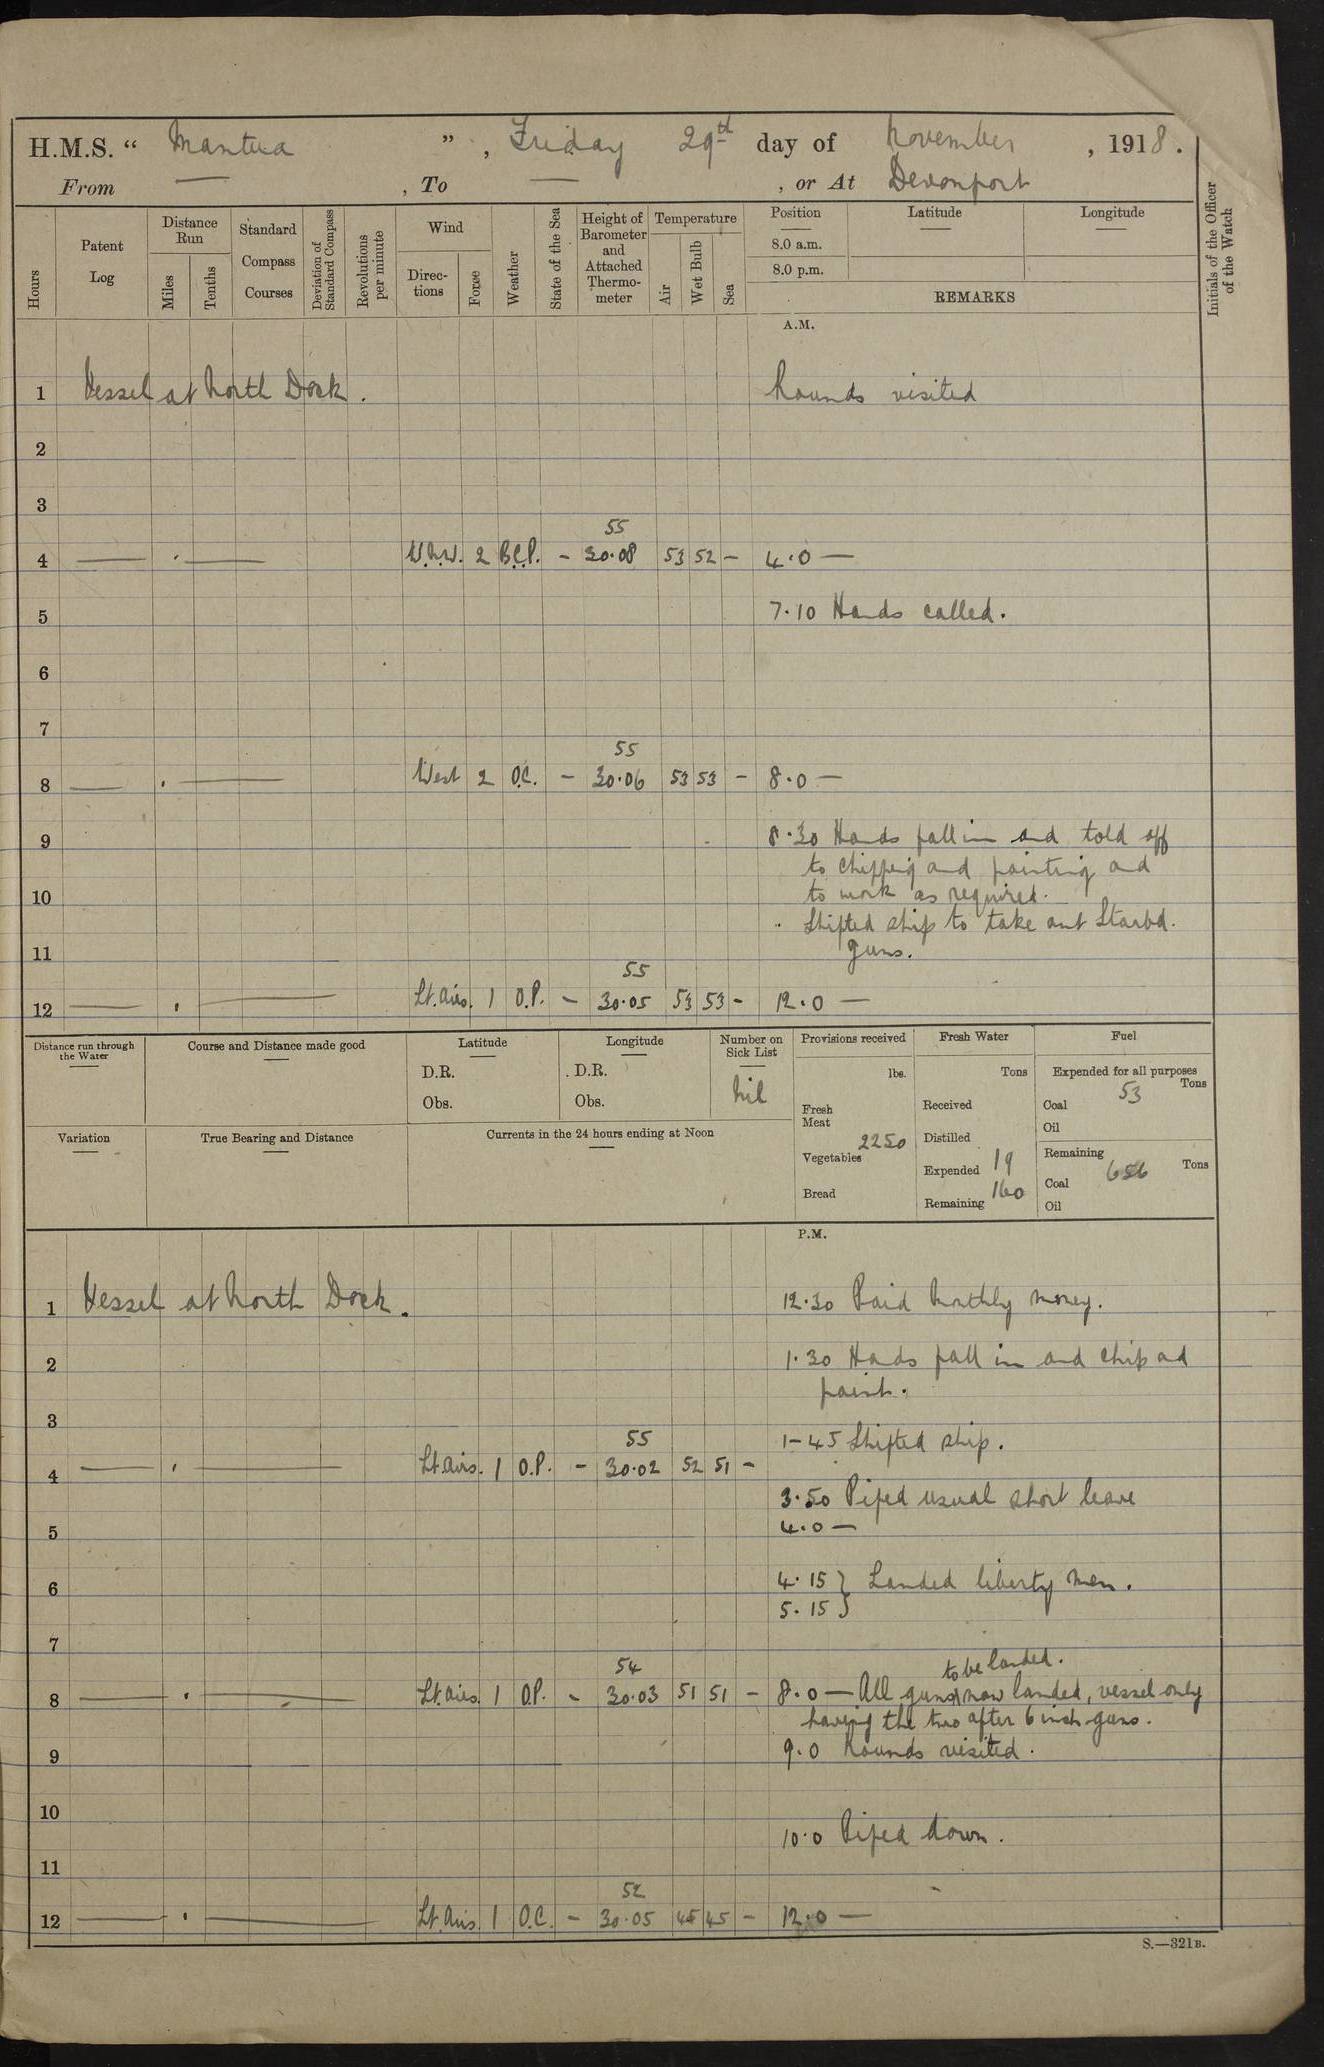 H.M.S. “ Mantua ”, Friday 29th day of November, 1918.
From — , To — , or At Devonport
Hours
Patent Log
Distance Run
Miles
Tenths
Standard Compass Courses
Deviation of Standard Compass
Revolutions per minute
Wind
Directions
Force
Weather
State of the Sea
Height of Barometer and Attached Thermometer
Temperature
Air
Wet Bulb
Sea
Position
Latitude
Longitude
8.0 a.m.
8.0 p.m.
REMARKS
Initials of the Officer of the Watch
A.M.
1 Vessel at North Dock. Rounds visited
2
3
55
4 W.N.W. 2 B.C.P. – 30.08 53 52 – 4.0 —
5 7.10 Hands called.
6
7
55
8 West 2 O.C. – 30.06 53 53 – 8.0 —
9 8.30 Hands fall in and told off
to chipping and painting and
10 to work as required.
Shifted ship to take out Starbd.
11 guns.
55
12 Lt. Airs. 1 O.P. – 30.05 53 53 – 12.0 —
Distance run through the Water
Course and Distance made good
Latitude
D.R.
Obs.
Longitude
D.R.
Obs.
Number on Sick List
Nil
Provisions received
lbs.
Fresh Meat
Vegetables 2250
Bread
Fresh Water
Tons
Received
Distilled
Expended 19
Remaining 160
Fuel
Expended for all purposes
Tons
Coal 53
Oil
Remaining
Tons
Coal 656
Oil
Variation
True Bearing and Distance
Currents in the 24 hours ending at Noon
P.M.
1 Vessel at North Dock. 12.30 Paid Monthly money.
2 1.30 Hands fall in and chip and
paint.
3
1-45 Shifted ship.
55
4 Lt. Airs. 1 O.P. – 30.02 52 51 –
3.50 Piped usual short leave
5 4.0 —
6 4.15 } Landed liberty men.
5.15 }
7
to be landed.
54
8 Lt. Airs. 1 O.P. – 30.03 51 51 – 8.0 — All guns now landed, vessel only
having the two after 6 inch guns.
9 9.0 Rounds visited.
10
10.0 Piped down.
11
52
12 Lt. Airs. 1 O.C. – 30.05 45 45 – 12.0 —
S.—321B.